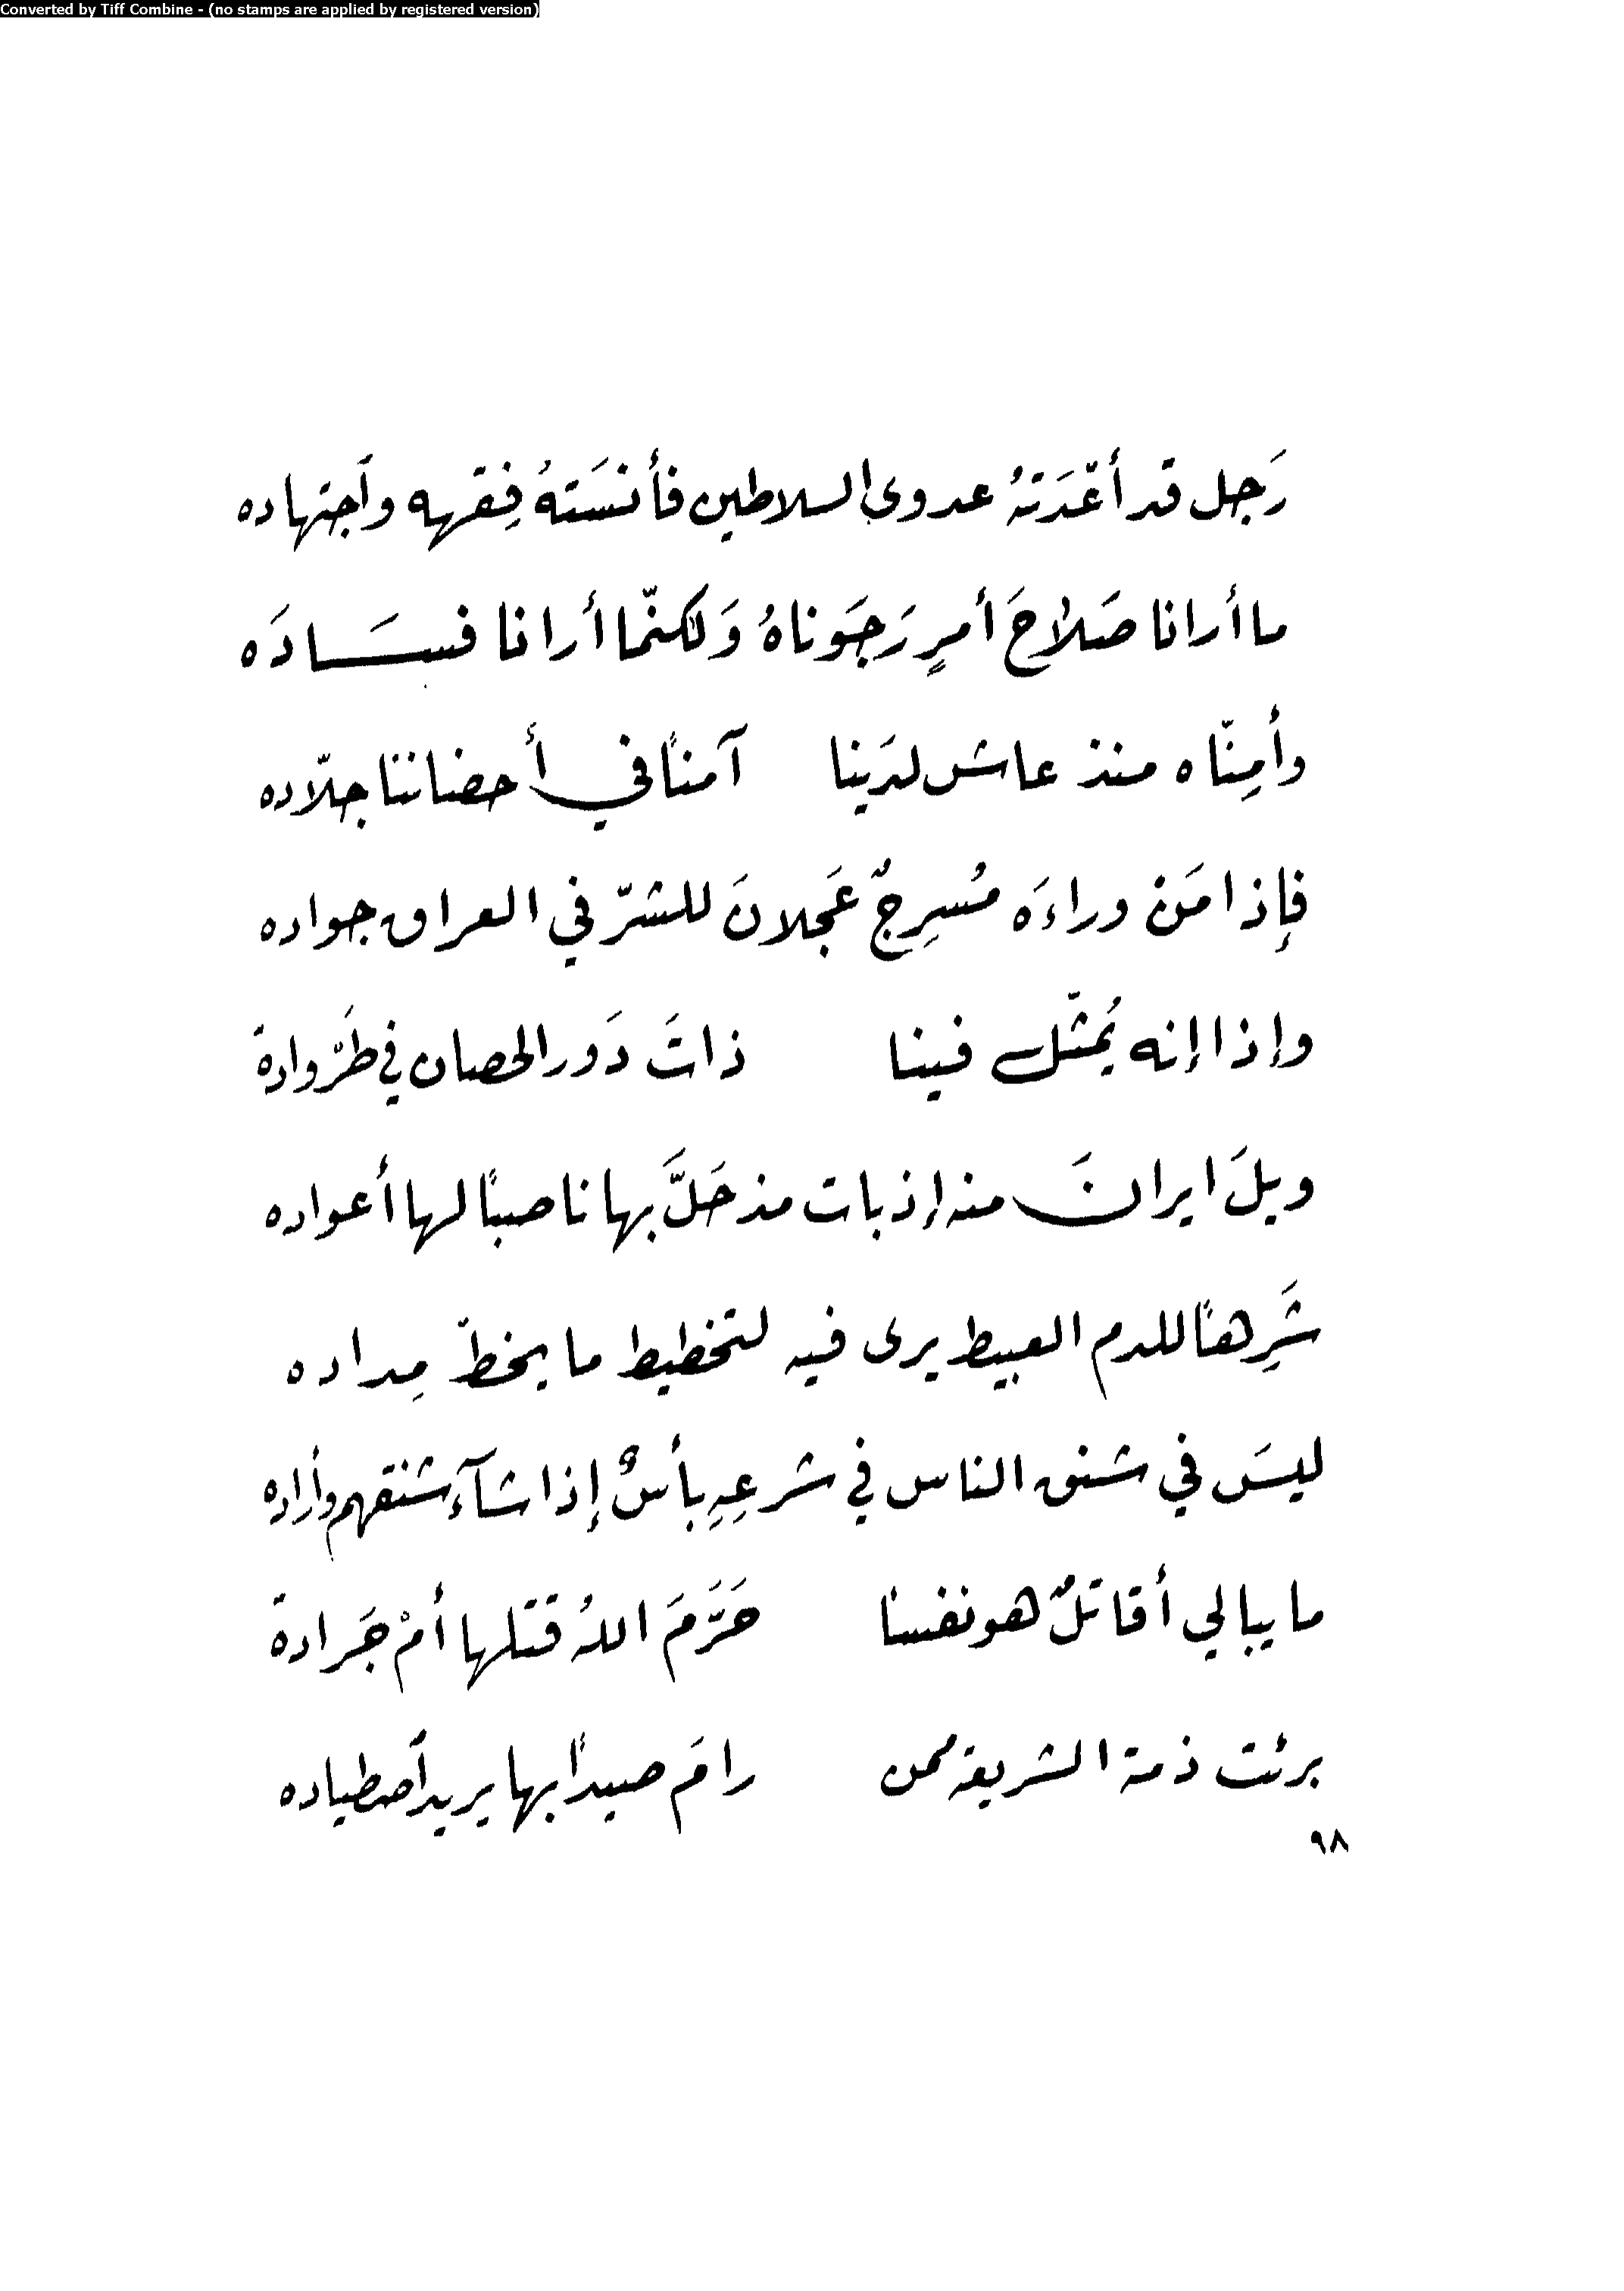 Converted by Tiff Combine - (no stamps are applied by registered version)
رَجل قد أعْدَتهُ عدوى السلاطين فأنسَتهُ فِقهه وآجتهاده
ما أرانا صَلاحَ أمرٍ رَجَوناهُ وَلكنّما أرانا فسَادَه
وأمِنّاه منذ عاش لدَينا آمنًا في أحضاننا جلّاده
فإذا مَنْ وراءَه مُسرِجٌ عَجلانَ للشرّ في العراق جواده
وإذا إنه يُمثّل فينا ذاتَ دَور الحصان في طَرّوادة
ويلَ ايرانَ منه إذ بات مذ حَلَّ بها ناصبًا لها أعواده
شَرِهًا للدم العبيط يرى فيه لتخطيط ما يخطّ مِداده
ليسَ في شنق الناس في شرعِهِ بأسٌ إذا شآءَ شنقهم وأراده
ما يبالي أقاتلٌ هو نفسًا حَرَّمَ اللهُ قتلها أمْ جَرادة
برئت ذمة الشريعة ممن رامَ صيدًا بها يريد آصطياده
٩٨